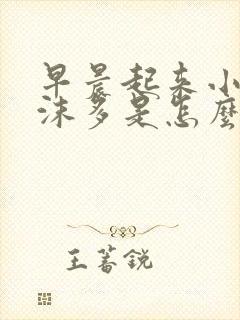 早晨起来小
沫多是怎麼
王蕃銳